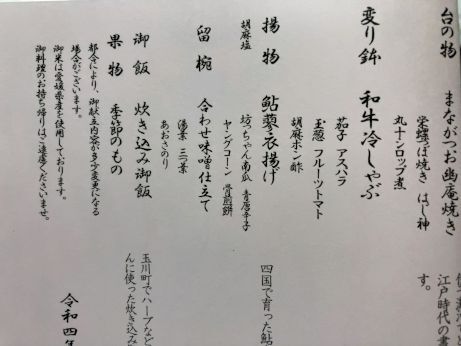 台の物　まながつお幽庵焼き
栄螺つぼ焼き　はじ神
丸十シロップ煮
変り鉢　和牛冷しゃぶ
茄子　アスパラ
玉葱　フルーツトマト
胡麻ポン酢
揚物　鮎蓼衣揚げ
胡麻塩　坊っちゃん南瓜　青唐辛子
ヤングコーン　骨煎餅
留椀　合わせ味噌仕立て
湯葉　三つ葉
あおさのり
御飯　炊き込み御飯
果物　季節のもの
都合により、御献立内容が多少変更になる
場合がございます。
御米は愛媛県産を使用しております。
御料理のお持ち帰りはご遠慮くださいませ。
江戸時代の書
す。
四国で育った鮎
玉川町でハーブなど
んに使った炊き込み
令和四年